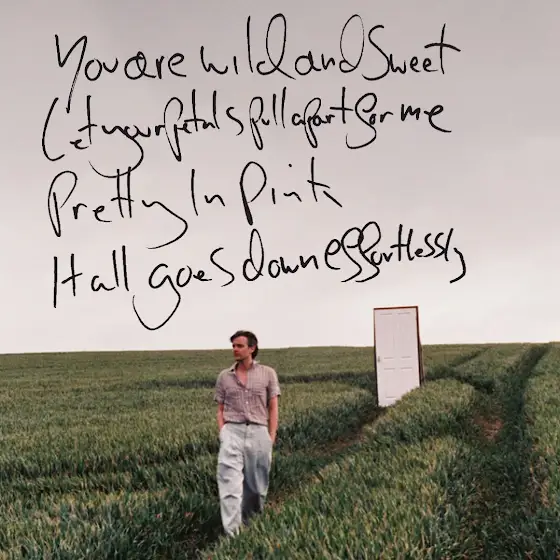 You are wild and sweet
Let your petals pull apart for me
Pretty In Pink
It all goes down effortlessly